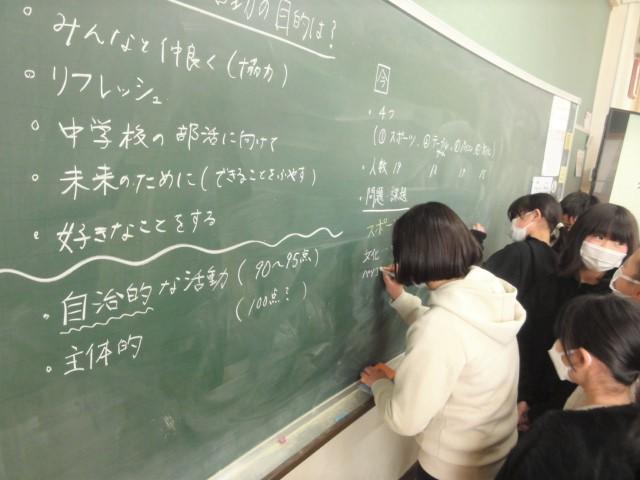 動の目的は?
。みんなと仲良く(協力)
。リフレッシュ
。中学校の部活に向けて
。未来のために(できることをふやす)
・好きなことをする
・自治的な活動(90〜95点)
(100点?)
・主体的
今
・4つ
(①スポーツ、②
・人数 19
・問題 課題
スポー
文化